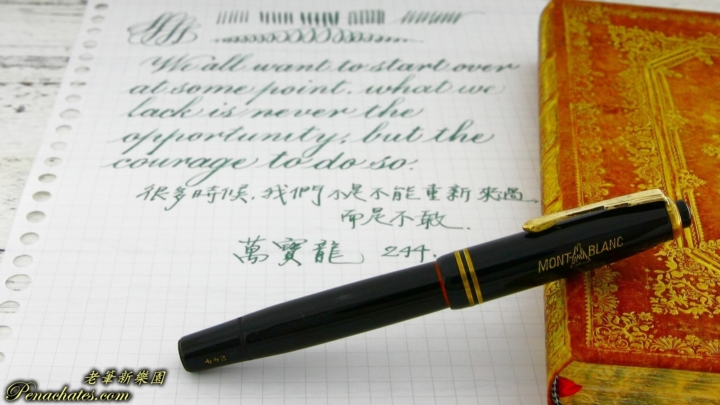 We all want to start over
at some point. what we
lack is never the
opportunity, but the
courage to do so.
很多時候,我們不是不能重新來過,
而是不敢.
萬寶龍 244.
MONT BLANC
老筆新樂園
Penachates.com